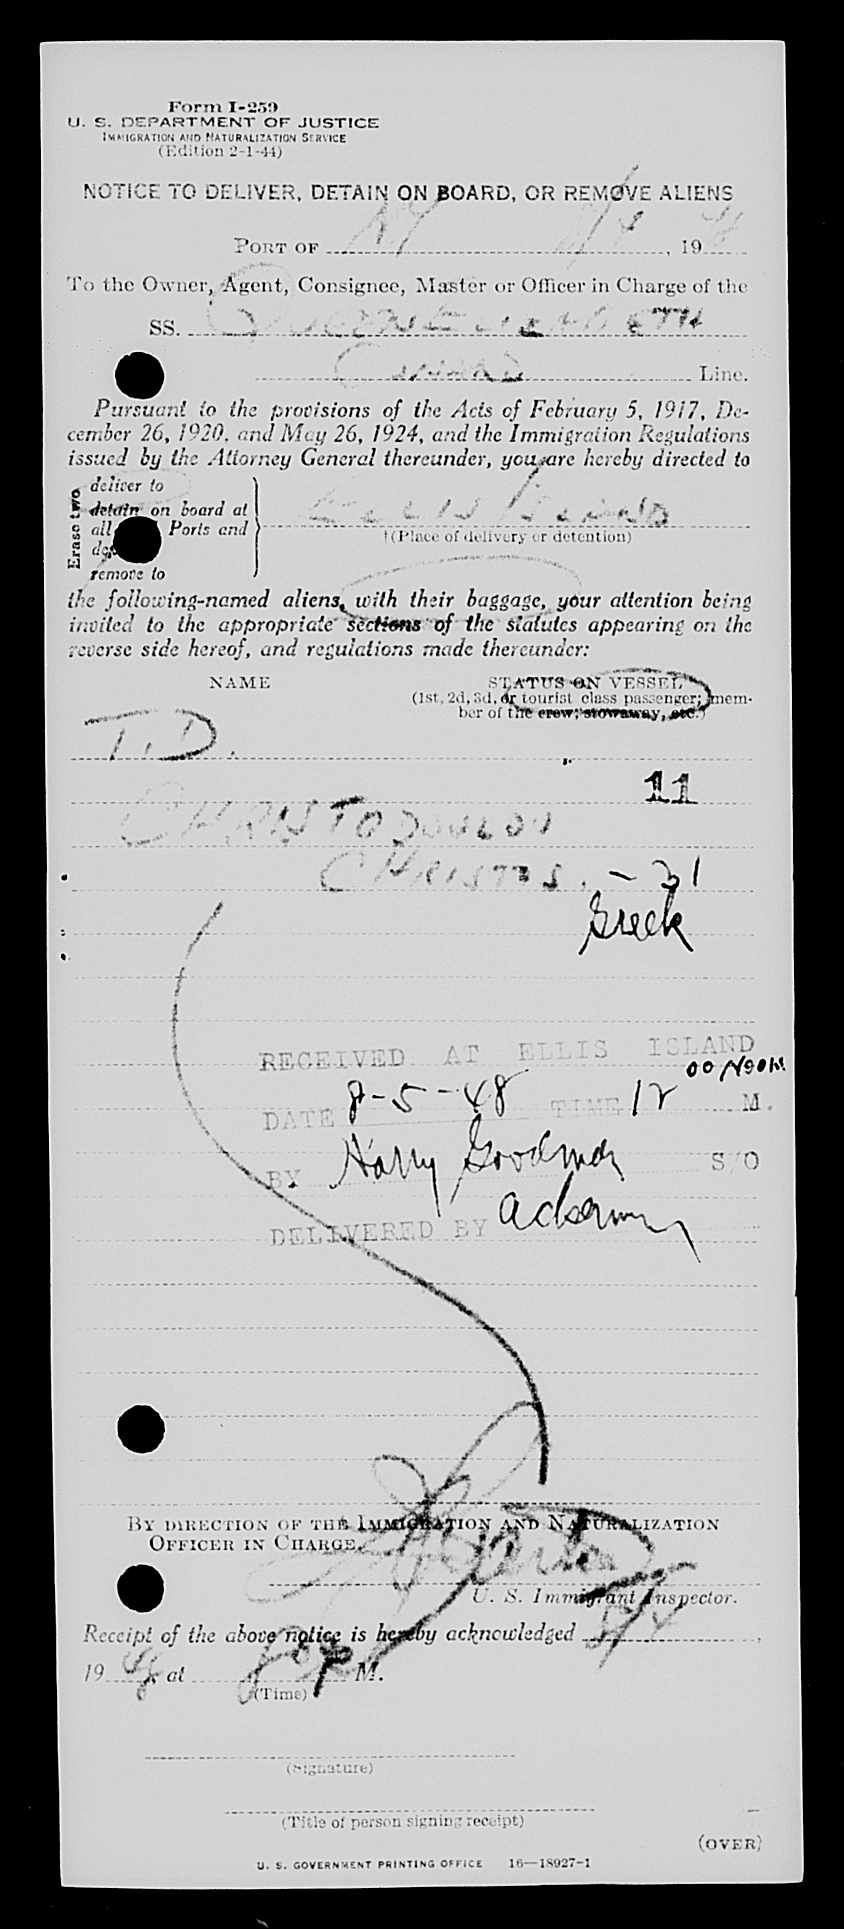 Form I-259
U. S. DEPARTMENT OF JUSTICE
IMMIGRATION AND NATURALIZATION SERVICE
(Edition 2-1-44)
NOTICE TO DELIVER, DETAIN ON BOARD, OR REMOVE ALIENS
PORT OF NY 8/4, 1948
To the Owner, Agent, Consignee, Master or Officer in Charge of the
SS. QUEEN ELIZABETH
CUNARD Line.
Pursuant to the provisions of the Acts of February 5, 1917, De-
cember 26, 1920, and May 26, 1924, and the Immigration Regulations
issued by the Attorney General thereunder, you are hereby directed to
Erase two
deliver to
detain on board at
all Ports and
remove to
ELLIS ISLAND
†(Place of delivery or detention)
the following-named aliens, with their baggage, your attention being
invited to the appropriate sections of the statutes appearing on the
reverse side hereof, and regulations made thereunder:
NAME STATUS ON VESSEL
(1st, 2d, 3d, or tourist class passenger; mem-
ber of the crew; stowaway, etc.)
T.D.
11
CHRISTODOULOU
CHRISTOS. - 31
Greek
RECEIVED AT ELLIS ISLAND
DATE 8-5-48 TIME 12 00 Noon M.
BY Harry Goodman S/O
DELIVERED BY Ackerman
BY DIRECTION OF THE IMMIGRATION AND NATURALIZATION
OFFICER IN CHARGE.
U. S. Immigrant Inspector.
Receipt of the above notice is hereby acknowledged 8/4,
1948 at P M.
(Time)
(Signature)
(Title of person signing receipt)
(OVER)
U. S. GOVERNMENT PRINTING OFFICE 16—18927-1